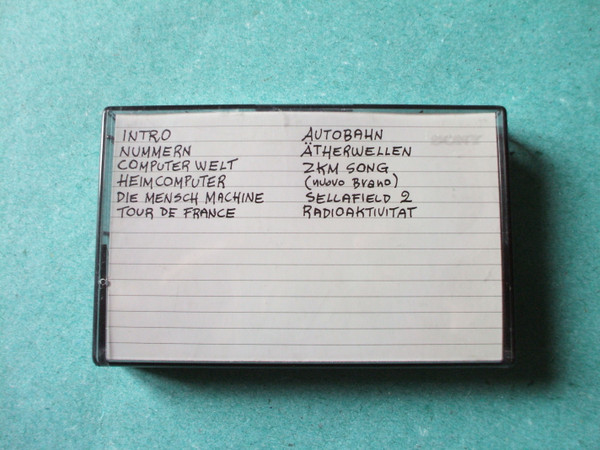 INTRO
NUMMERN
COMPUTER WELT
HEIMCOMPUTER
DIE MENSCH MACHINE
TOUR DE FRANCE
AUTOBAHN
ÄTHERWELLEN
ZKM SONG
(nuovo Brano)
SELLAFIELD 2
RADIOAKTIVITAT
SONY